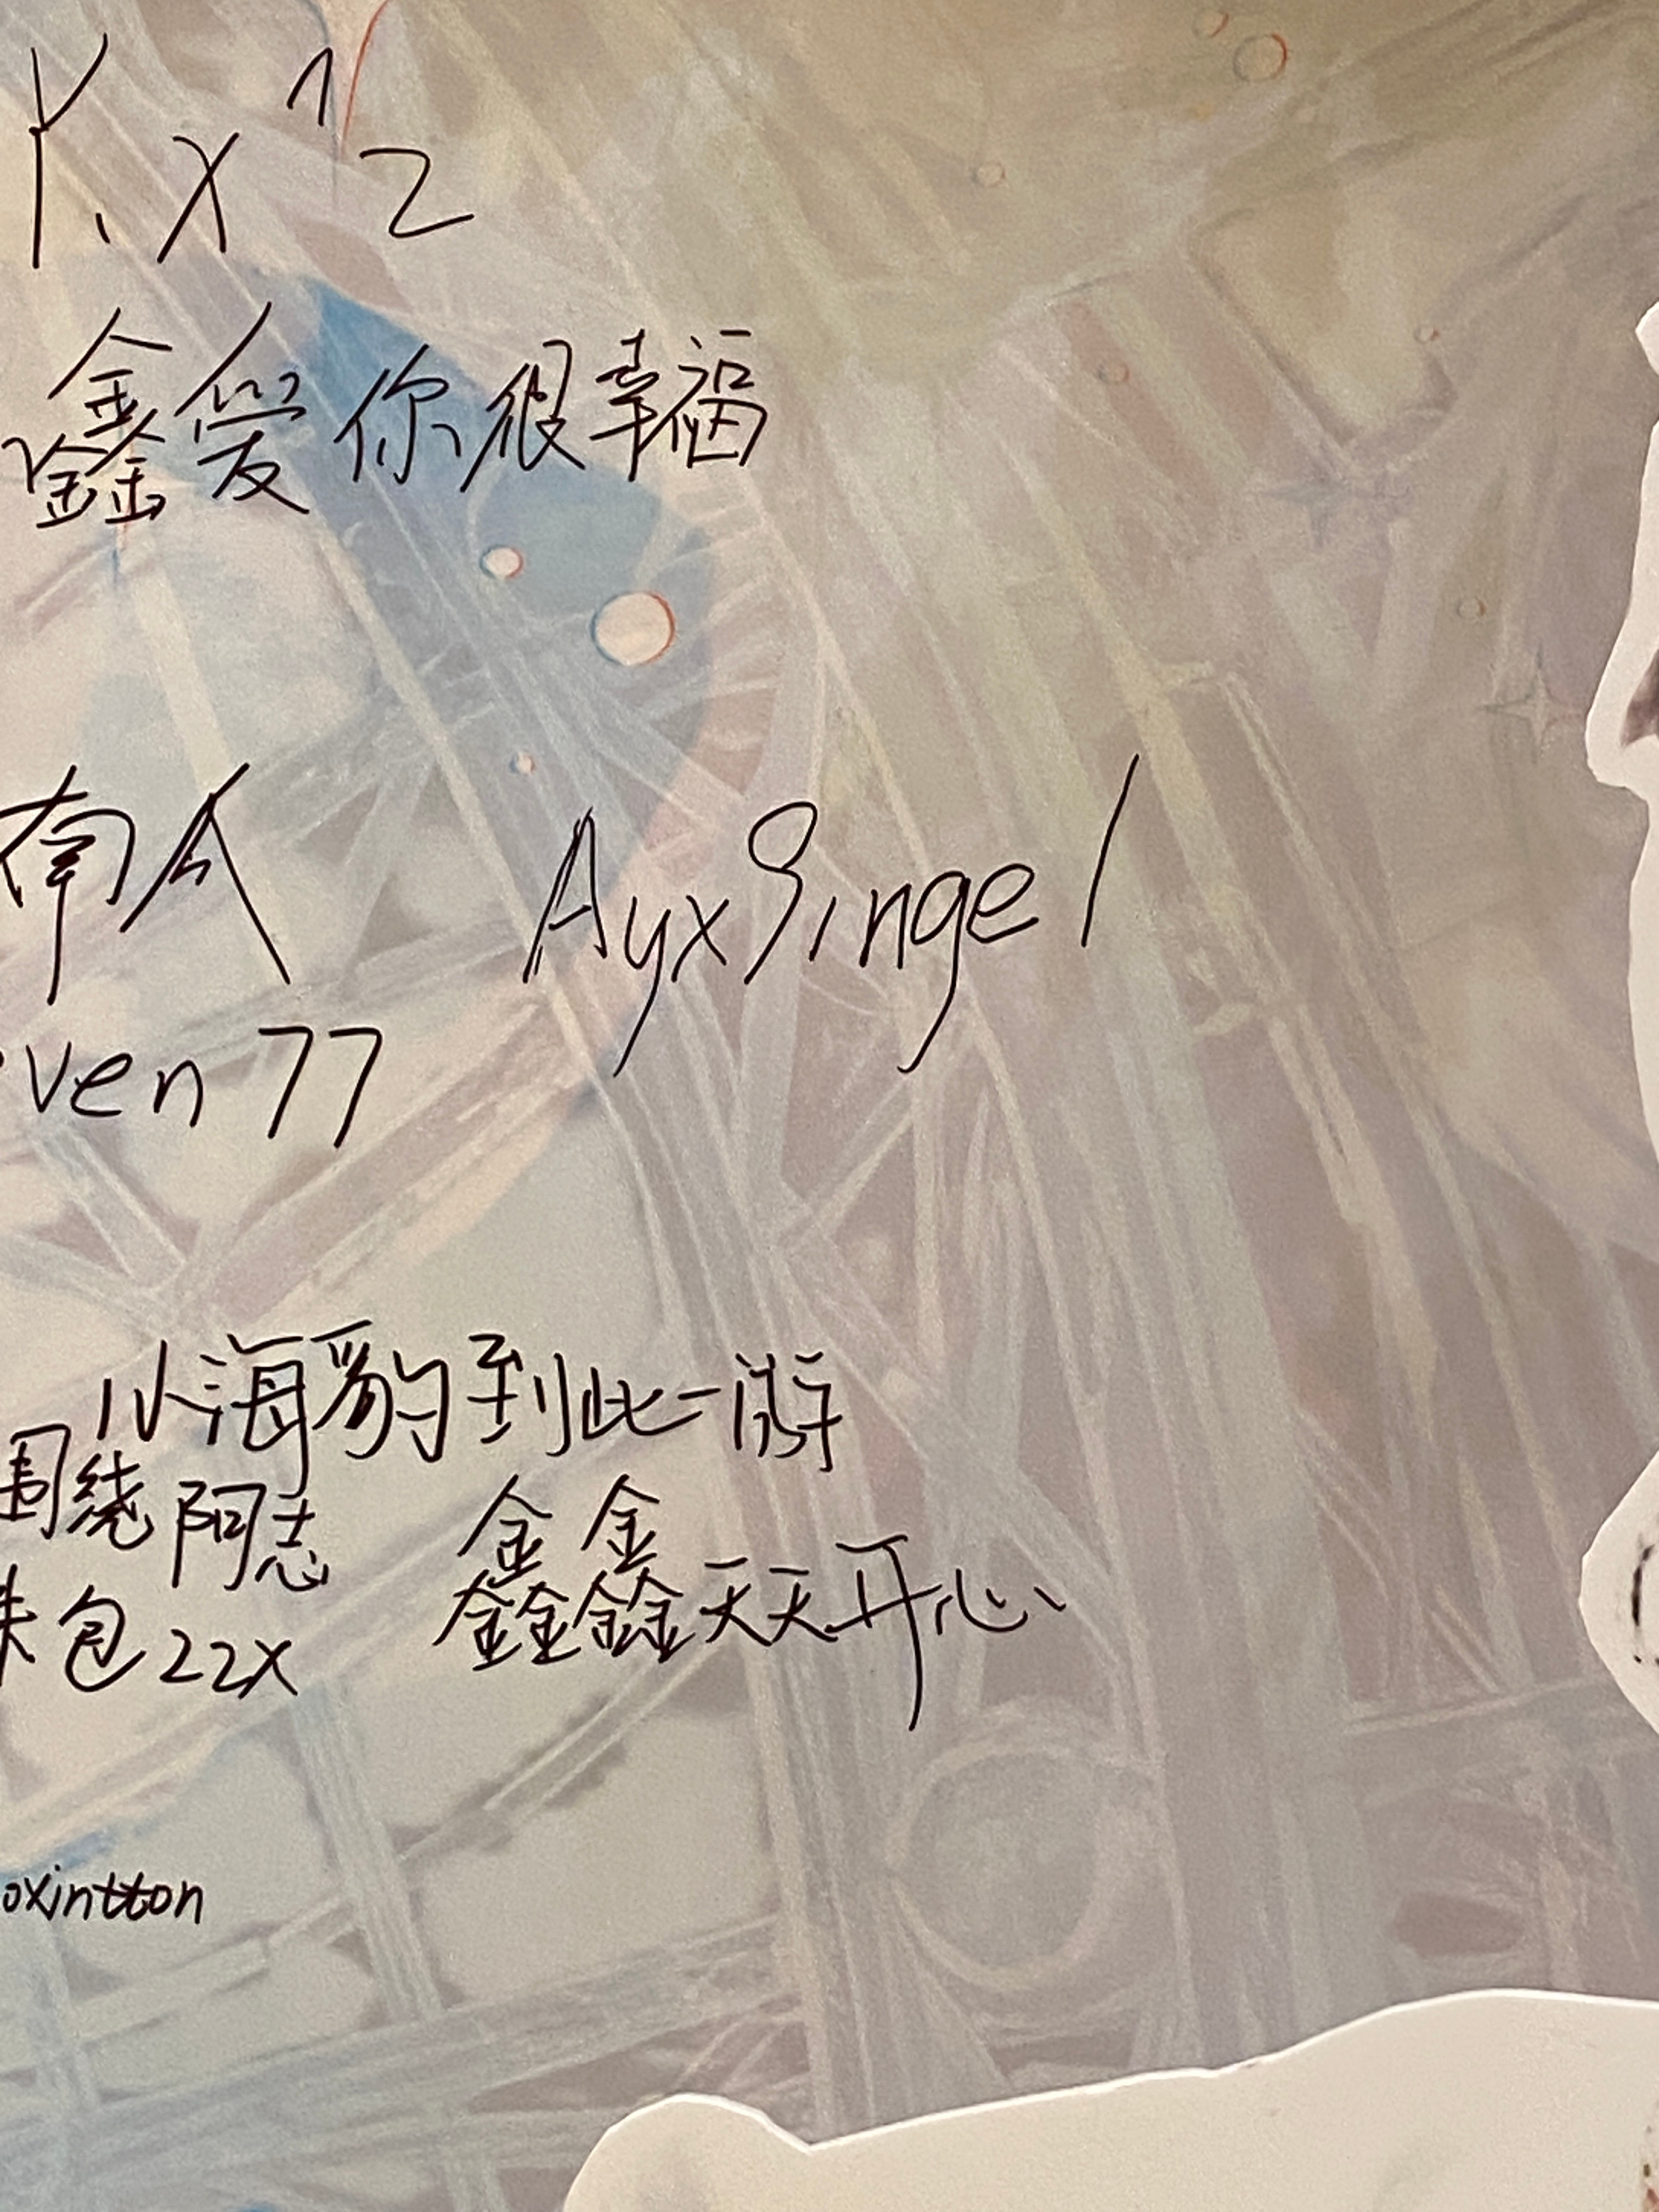 鑫爱你很幸福
南瓜
AyxSinge1
ven77
小海豹到此一游
围绕阿志
鑫鑫天天开心
包22x
oxintton